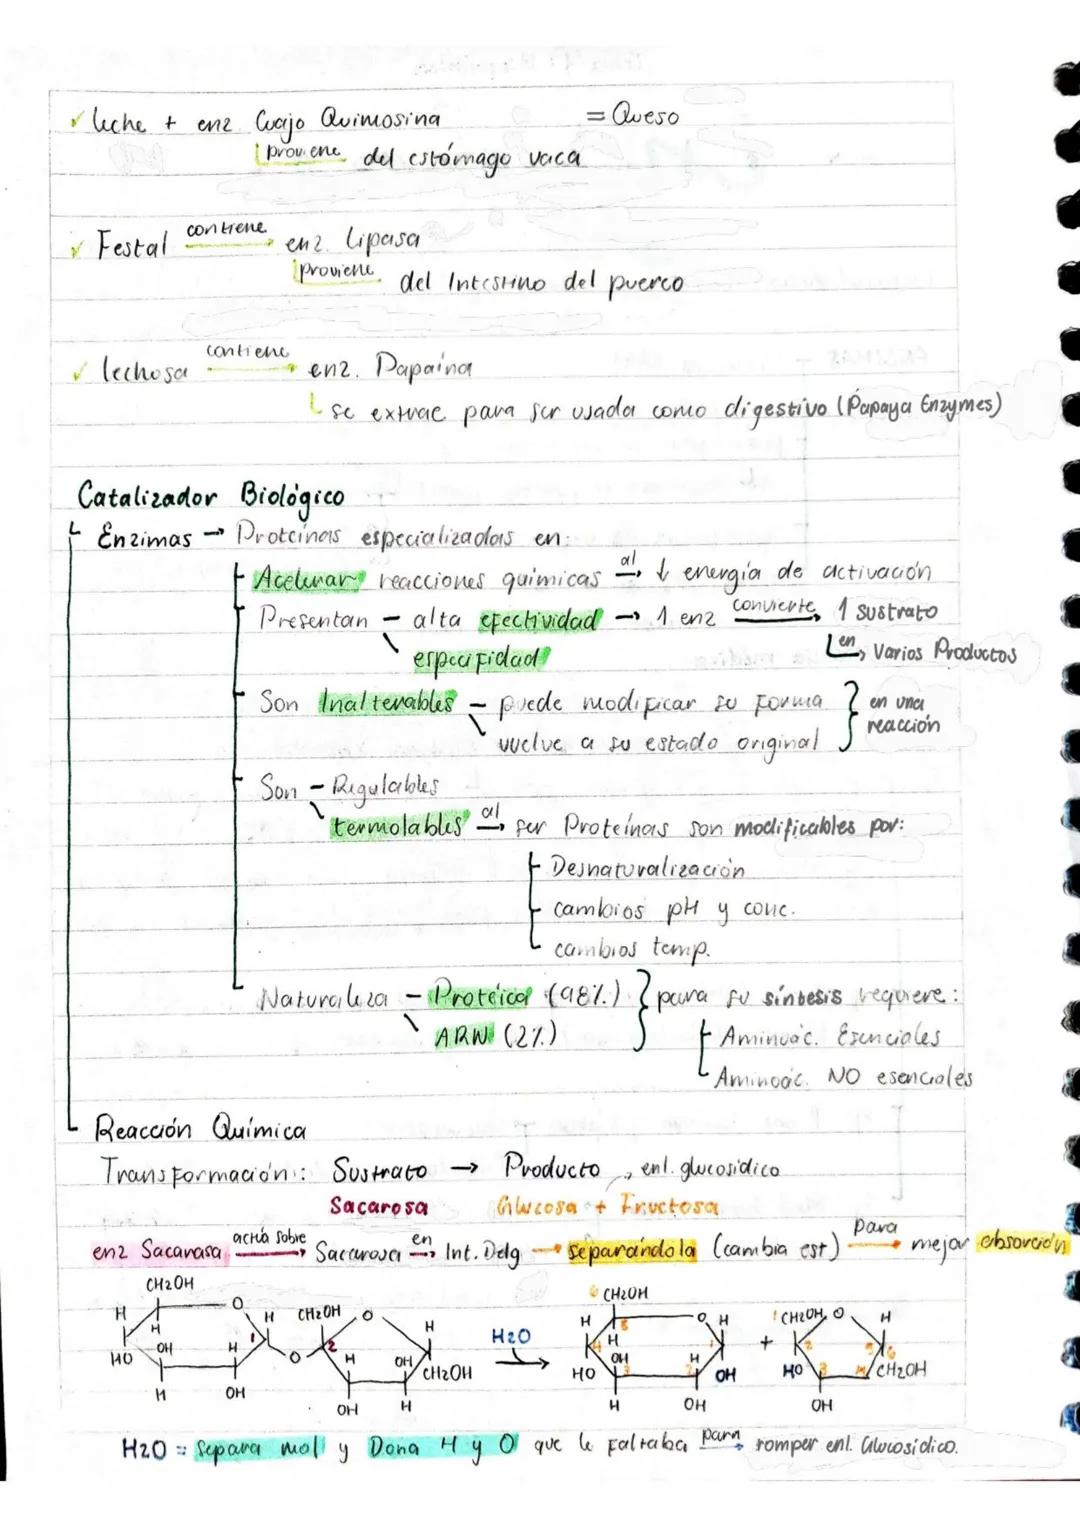 ✓ leche + enz. Cuajo Quimosina = Queso
proviene del estómago vaca
✓ Festal contiene → enz. Lipasa
proviene del Intestino del puerco
✓ lechosa contiene → enz. Papaína
se extrae para ser usada como digestivo (Papaya Enzymes)
Catalizador Biológico
Enzimas → Proteínas especializadas en:
Acelerar reacciones químicas al → ↓ energía de activación
Presentan - alta efectividad → 1 enz convierte → 1 sustrato
especifidad en → Varios Productos
Son Inalterables - puede modificar su forma } en una
vuelve a su estado original reacción
Son - Regulables
termolables al → ser Proteínas son modificables por:
Desnaturalización
cambios pH y conc.
cambios temp.
Naturaleza - Proteica (98%) } para su síntesis requiere:
ARN (2%) Aminoác. Esenciales
Aminoác. NO esenciales
Reacción Química
Transformación: Sustrato → Producto, enl. glucosidico
Sacarosa Glucosa + Fructosa
enz Sacarasa actúa sobre → Sacarosa en → Int. Delg → separándola (cambia est) para → mejor absorción
CH2OH CH2OH
H O H CH2OH O H H O H + 1 CH2OH O H
H H
HO OH H 1 O 2 H OH CH2OH H2O → HO OH H OH HO CH2OH
H OH OH H H OH OH
H2O = Separa mol y Dona H y O que le faltaba para → romper enl. Glucosídico.